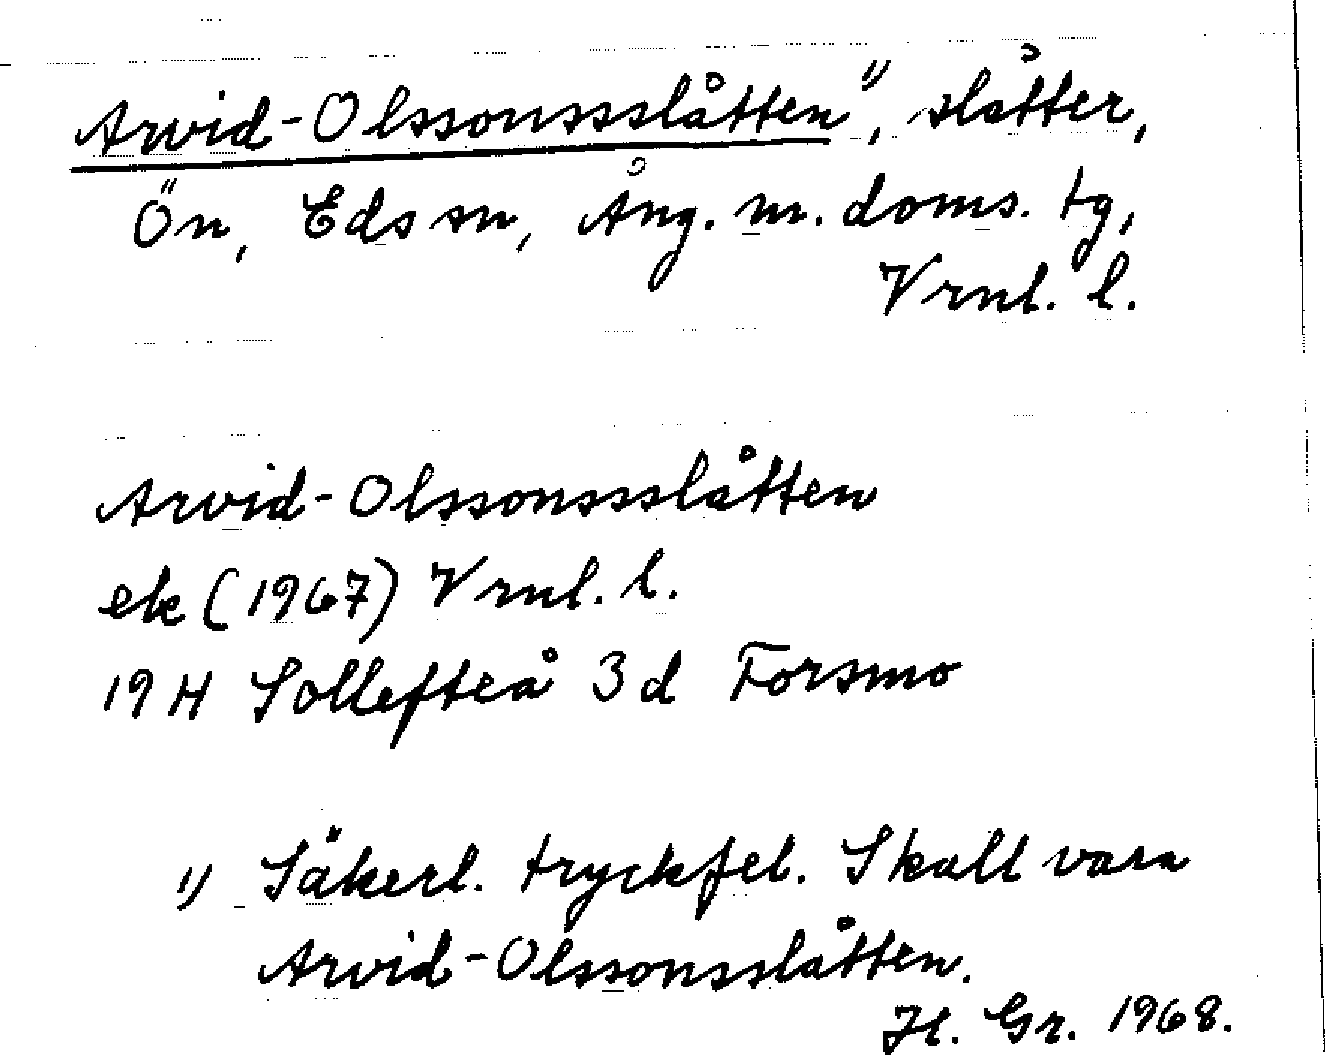 Arvid-Olssonssslåtten¹⁾, slåtter,
Ön, Eds sn, Ång. m. doms. tg,
Vrnl. l.
Arvid-Olssonssslåtten
ek (1967) Vrnl. l.
19H Sollefteå 3d Forsmo
1) Säkerl. tryckfel. Skall vara
Arvid-Olssonsslåtten.
H. Gr. 1968.